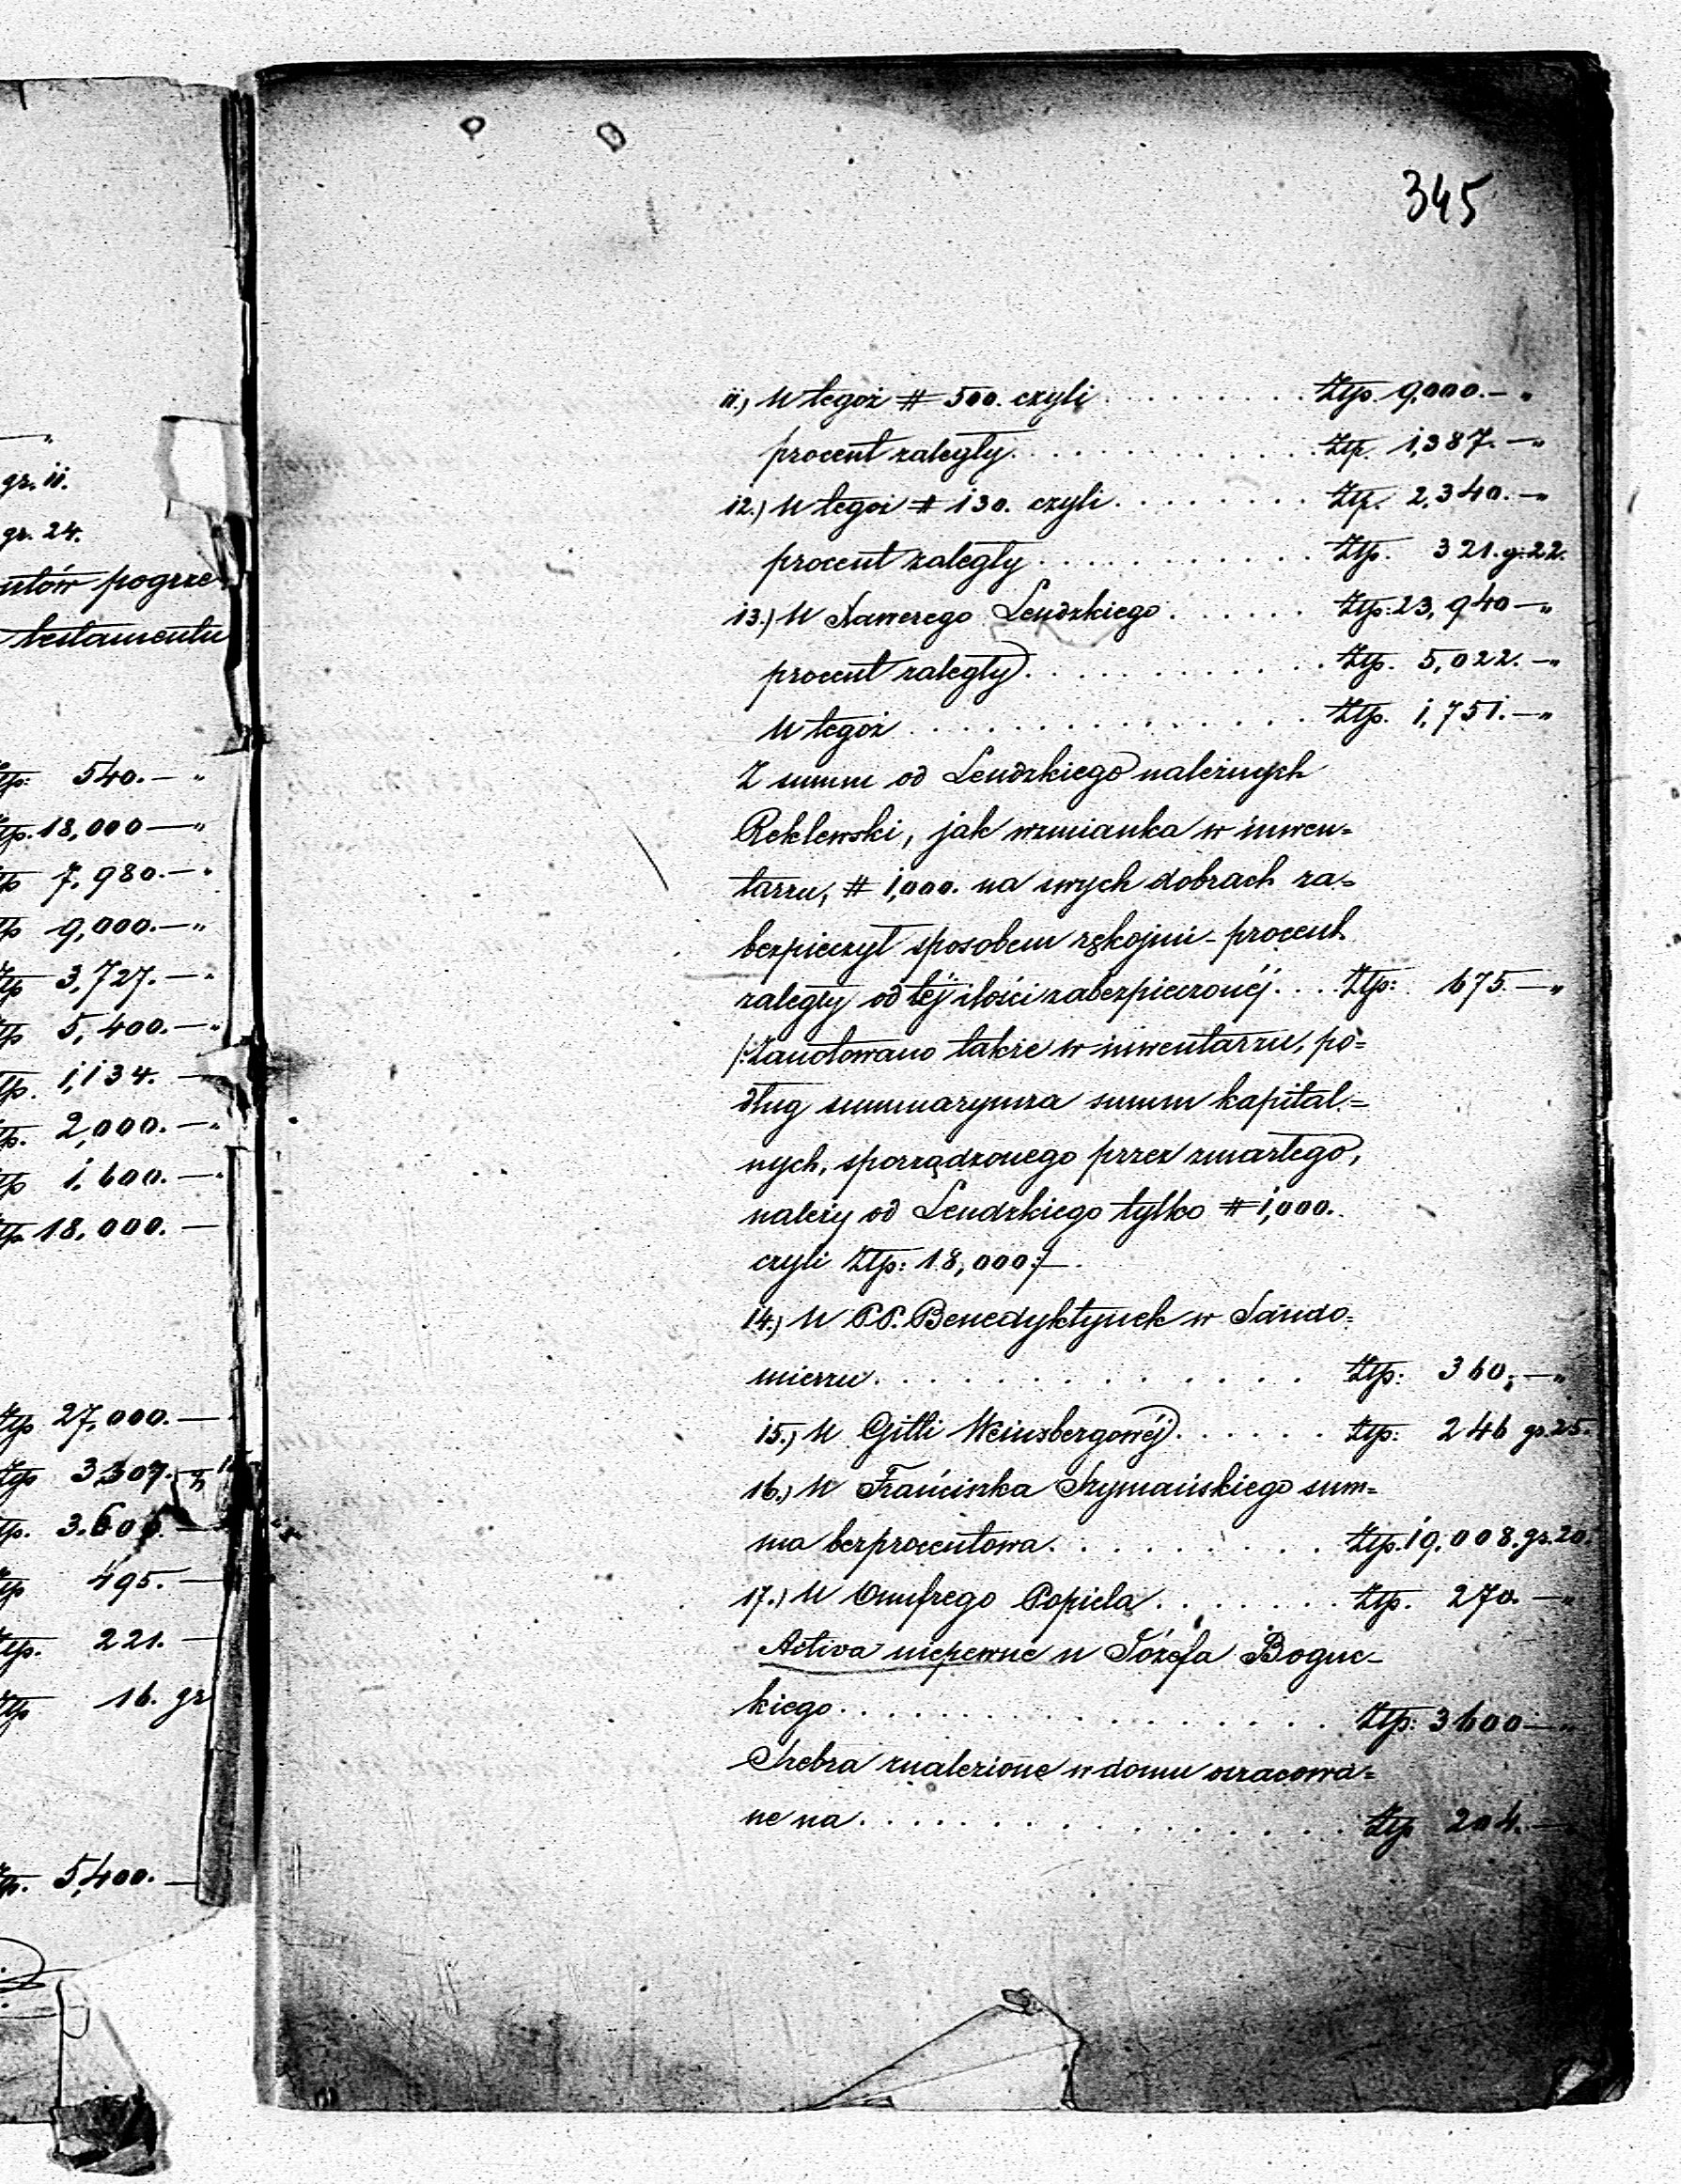 gr. 11.
gr. 24.
ntów pogrze
testamentu
Ztp: 540.— "
Ztp. 18,000 — "
Ztp 7,980.— "
Ztp 9,000.— "
Ztp 3,727.— "
Ztp 5,400.— "
Ztp. 1,134. —
Ztp. 2,000.— "
Ztp 1,600.— "
Ztp. 18,000. —
Ztp 27,000.—
Ztp 3307.
Ztp. 3.600. —
Ztp 495. —
Ztp. 221. —
Ztp 16. gr
Ztp. 5,400. —
345
11.) U tegoż # 500. czyli . . . . . . . . . Ztp. 9,000.— "
procent zaległy . . . . . . . . . . . . . Ztp. 1,387.— "
12.) U tegoż # 130. czyli . . . . . . . . Ztp. 2,340.— "
procent zaległy . . . . . . . . . . . Ztp. 321. g: 22.
13.) U Xawerego Lendzkiego . . . . . . Ztp: 23,940 — "
procent zaległy . . . . . . . . . . . . Ztp. 5,022. — "
U tegoż . . . . . . . . . . . . . . . Ztp. 1,751. — "
Z summ od Lendzkiego należnych
Reklewski, jak wzmianka w inwen=
tarzu, # 1,000. na swych dobrach za=
bezpieczył sposobem rękojmi - procent
zaległy od téj ilości zabezpieczonéj . . . . Ztp: 675.— "
/:Zanotowano także w inwentarzu, po=
dług summaryusza summ kapital=
nych, sporządzonego przez zmarłego,
należy od Lendzkiego tylko # 1,000.
czyli Ztp: 18,000:/—.
14.) U PP. Benedyktynek w Sando=
mierzu . . . . . . . . . . . . . . Ztp: 360,— "
15.) U Gitli Weinsbergowéj . . . . . . Ztp: 246 gr. 25.
16.) U Franciszka Szymańskiego sum=
ma bezprocentowa . . . . . . . . . Ztp. 19,008. gr. 20.
17.) U Onufrego Popiela . . . . . . . Ztp. 270. — "
Activa niepewne u Józefa Boguc-
kiego . . . . . . . . . . . . . . . . Ztp: 3600 — "
Srebra znalezione w domu oszacowa=
ne na . . . . . . . . . . . . . . . . Ztp 204. —